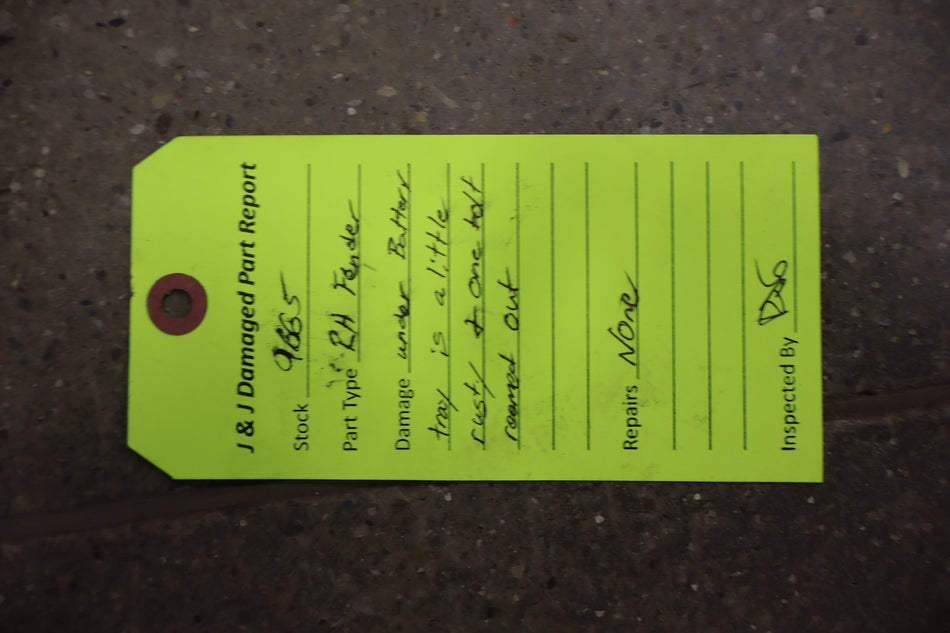 J & J Damaged Part Report
Stock
Part Type RH Fender
Damage under Batterr
tray is a little
rusty & one bolt
reamed out
Repairs None
Inspected By